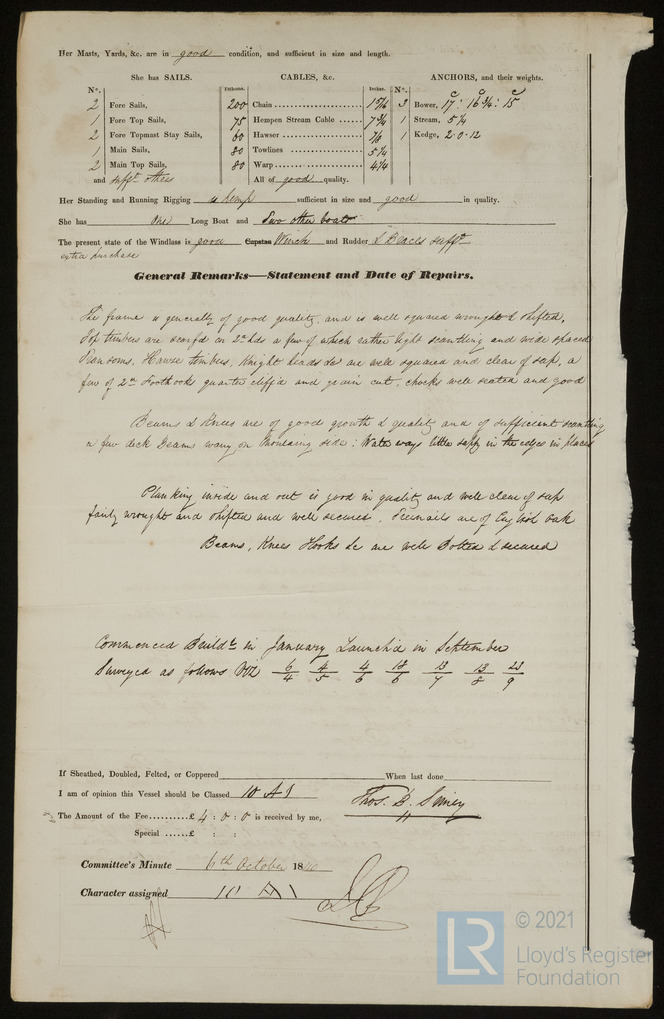 Her Masts, Yards, &c. are in good condition, and sufficient in size and length.
She has SAILS. CABLES, &c. ANCHORS, and their weights.
No. Fathoms. Inches. No.
2 Fore Sails, 200 Chain 1 5/16 3 Bower, 17 : 16 3/4 : 15
1 Fore Top Sails, 75 Hempen Stream Cable 7 3/4 1 Stream, 5 1/4
2 Fore Topmast Stay Sails, 60 Hawser 1 Kedge, 2-0-12
1 Main Sails, 80 Towlines 5 1/4
2 Main Top Sails, 80 Warp 4 1/4
and sufft others All of good quality.
Her Standing and Running Rigging is hemp sufficient in size and good in quality.
She has one Long Boat and Two other boats
The present state of the Windlass is good Capstan Winch and Rudder & sufft
extra purchase
General Remarks—Statement and Date of Repairs.
The frame is generally of good quality, and is well squared wrought & shifted,
Top timbers are scarf'd on 2n hds a few of which rather light scantling and wide spaced
Transoms, Hawse timbers, Knight heads &c are well squared and clear of sap, a
few of 2nd Foothooks quarter cliff'd and grain cut, chocks well seated and good
Beams & Knees are of good growth & quality and of sufficient scantling
a few deck Beams wany on moulding side : Water ways little sappy in the edges in places
Planking inside and out is good in quality and well clear of sap
fairly wrought and shifted and well secured. Treenails are of English oak
Beams, Knees Hooks &c are well Bolted & secured
Commenced Buildg in January Launch'd in September
Surveyed as follows Viz 6/4 4/5 4/6 18/6 13/7 13/8 23/9
If Sheathed, Doubled, Felted, or Coppered When last done
I am of opinion this Vessel should be Classed 10 A1
The Amount of the Fee £ 4 : 0 : 0 is received by me,
Special £ : :
Thos. B. Simey
Committee's Minute 6th October 1840
Character assigned 10 A1
LR
© 2021
Lloyd's Register
Foundation